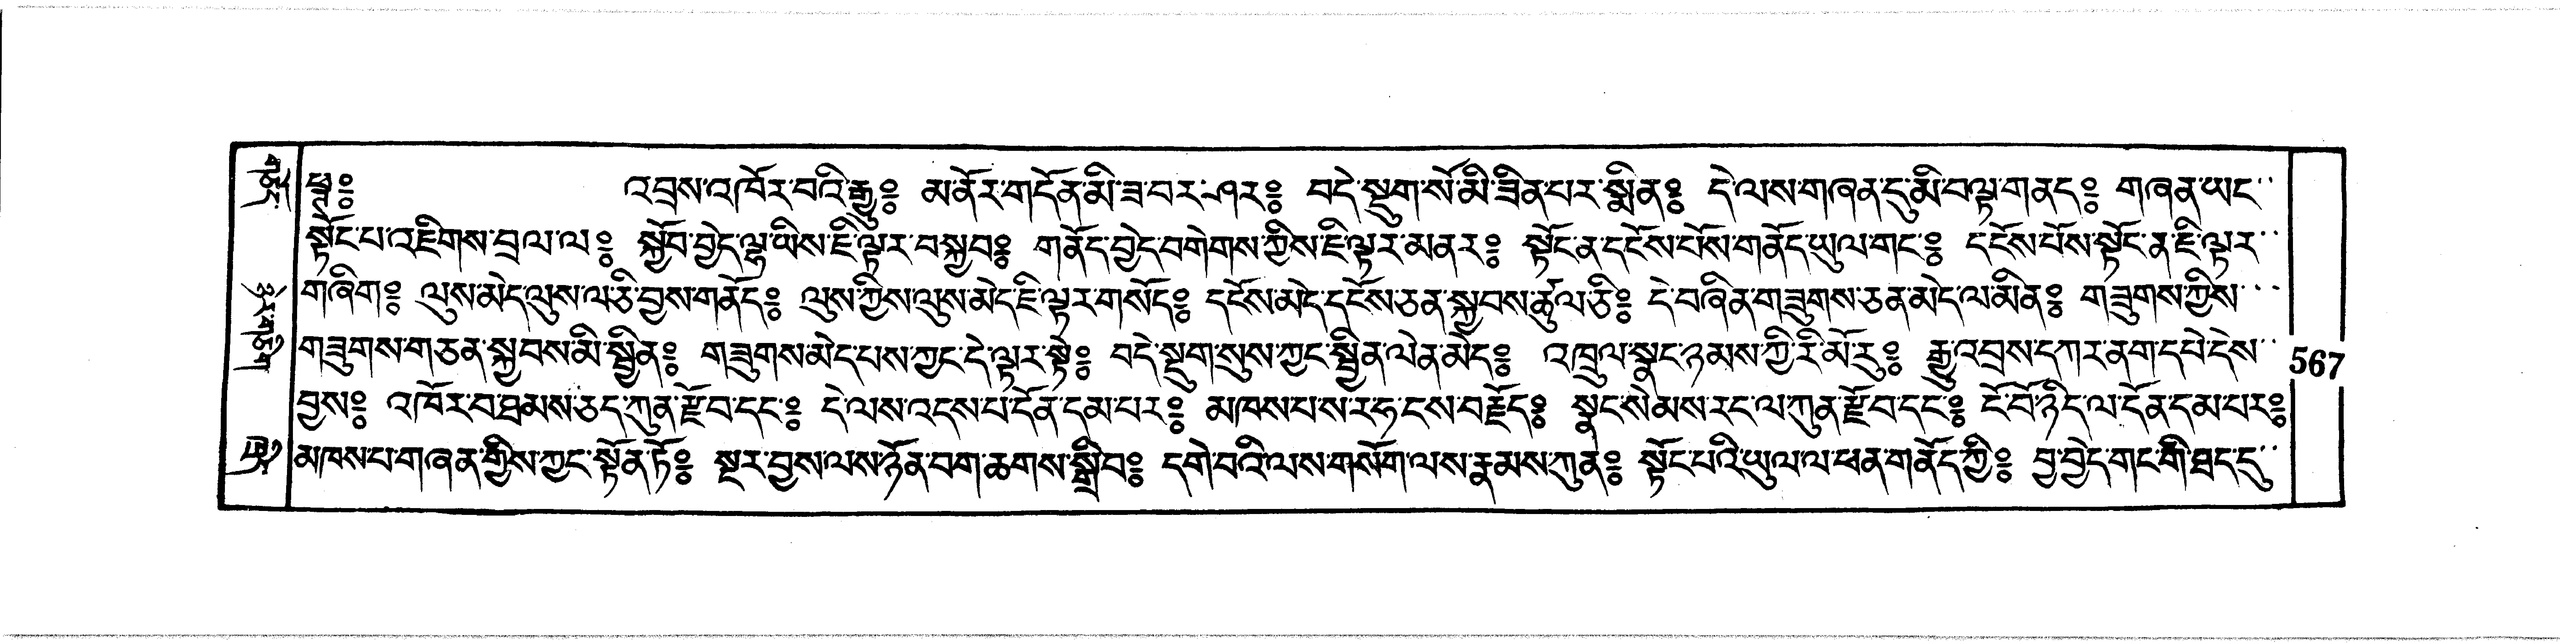 ཕྱ༔ འབྲས་འཁོར་བའི་རྒྱུ༔ མནོར་གདོན་མི་ཟ་བར་ཤར༔ བདེ་སྡུག་སོ་མི་ཟིན་པར་སྨིན༔ དེ་ལས་གཞན་དུ་མི་བལྟ་གནད༔ གཞན་ཡང་
སྟོང་པ་འཇིགས་བྲལ་ལ༔ སྐྱོབ་བྱེད་ལྷ་ཡིས་ཇི་ལྟར་བསྐྱབ༔ གནོད་བྱེད་བགེགས་ཀྱིས་ཇི་ལྟར་མནར༔ སྟོང་ན་དངོས་པོས་གནོད་ཡུལ་གང་༔ དངོས་པོས་སྟོང་ན་ཇི་ལྟར་
གཞིག༔ ལུས་མེད་ལུས་ལ་ཅི་བྱས་གནོད༔ ལུས་ཀྱིས་ལུས་མེད་ཇི་ལྟར་གསོད༔ དངོས་མེད་དངོས་ཅན་སྐྱབས་ཚུལ་ཅི༔ དེ་བཞིན་གཟུགས་ཅན་མེད་ལ་མིན༔ གཟུགས་ཀྱིས་
གཟུགས་གཅན་སྐྱབས་མི་སྦྱིན༔ གཟུགས་མེད་པས་ཀྱང་དེ་ལྟར་སྟེ༔ བདེ་སྡུག་སུས་ཀྱང་སྦྱིན་ལེན་མེད༔ འཁྲུལ་སྣང་ཉམས་ཀྱི་རི་མོ་རུ༔ རྒྱུ་འབྲས་དཀར་ནག་དཔེ་དེས་
བྱས༔ འཁོར་བ་ཐམས་ཅད་ཀུན་རྫོབ་དང་༔ དེ་ལས་འདས་པ་དོན་དམ་པར༔ མཁས་པས་རང་ངས་བརྗོད༔ སྣང་སེམས་རང་ལ་ཀུན་རྫོབ་དང་༔ ངོ་བོ་ཉིད་ལ་དོན་དམ་པར༔
མཁས་པ་གཞན་གྱིས་ཀྱང་སྟོན་ཏོ༔ སྔར་བྱས་ལས་ཉོན་བག་ཆགས་སྒྲིབ༔ དགེ་བའི་ལས་གསོག་ལས་རྣམས་ཀུན༔ སྟོང་པའི་ཡུལ་ལ་ཕན་གནོད་ཀྱི༔ བྱ་བྱེད་གང་གི་ཐད་དུ་
567